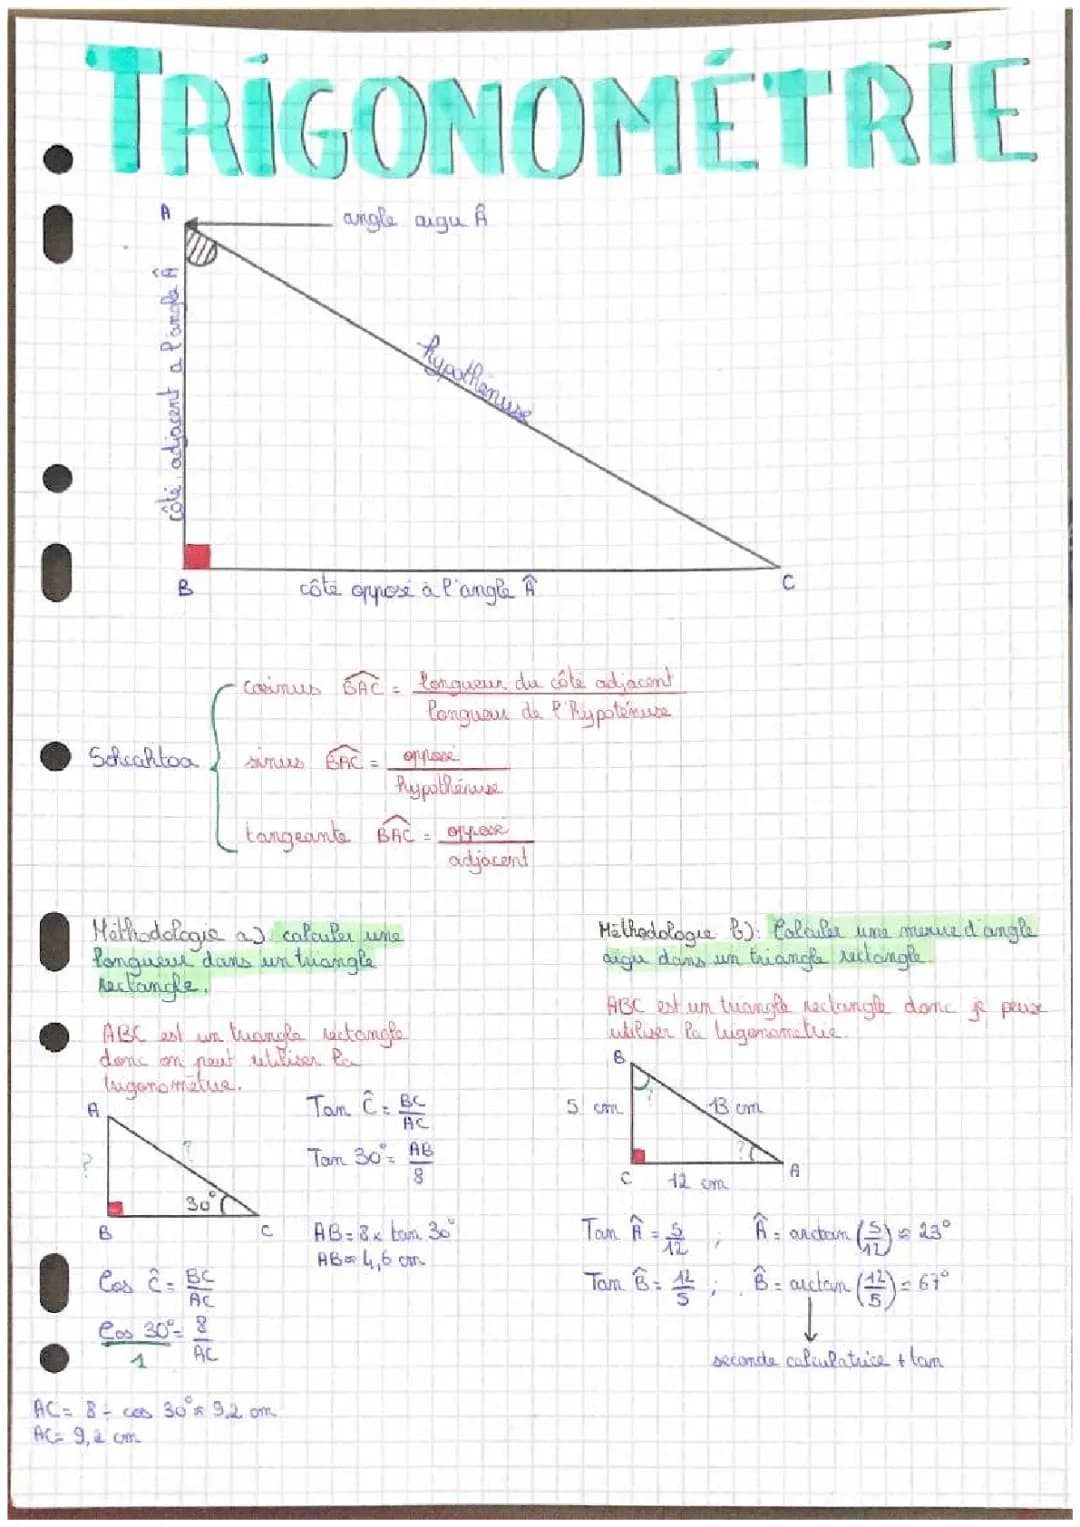 TRIGONOMÉTRIE
A
angle aigu Â
côté adjacent a l'angle Â
hypothénuse
B
côté opposé à l'angle Â
C
Sohcahtoa
cosinus BAC = longueur du côté adjacent
longueur de l'hypoténuse
sinus BAC = opposé
hypothénuse
tangeante BAC = opposé
adjacent
Méthodologie a): calculer une
longueur dans un triangle
rectangle.
ABC est un triangle rectangle
donc on peut utiliser la
trigonométrie.
A
?
?
30°
B
C
Tan Ĉ = BC
AC
Tan 30° = AB
8
AB = 8 x tan 30°
AB ≈ 4,6 cm
Cos Ĉ = BC
AC
Cos 30° = 8
1 AC
AC = 8 ÷ cos 30° ≈ 9,2 cm
AC = 9,2 cm
Méthodologie b): Calculer une mesure d'angle
aigu dans un triangle rectangle.
ABC est un triangle rectangle donc je peux
utiliser la trigonometrie.
B
?
5 cm
13 cm
?
C
12 cm
A
Tan Â = 5/12 ; Â = arctan (5/12) ≈ 23°
Tan B̂ = 12/5 ; B̂ = arctan (12/5) = 67°
seconde calculatrice + tan